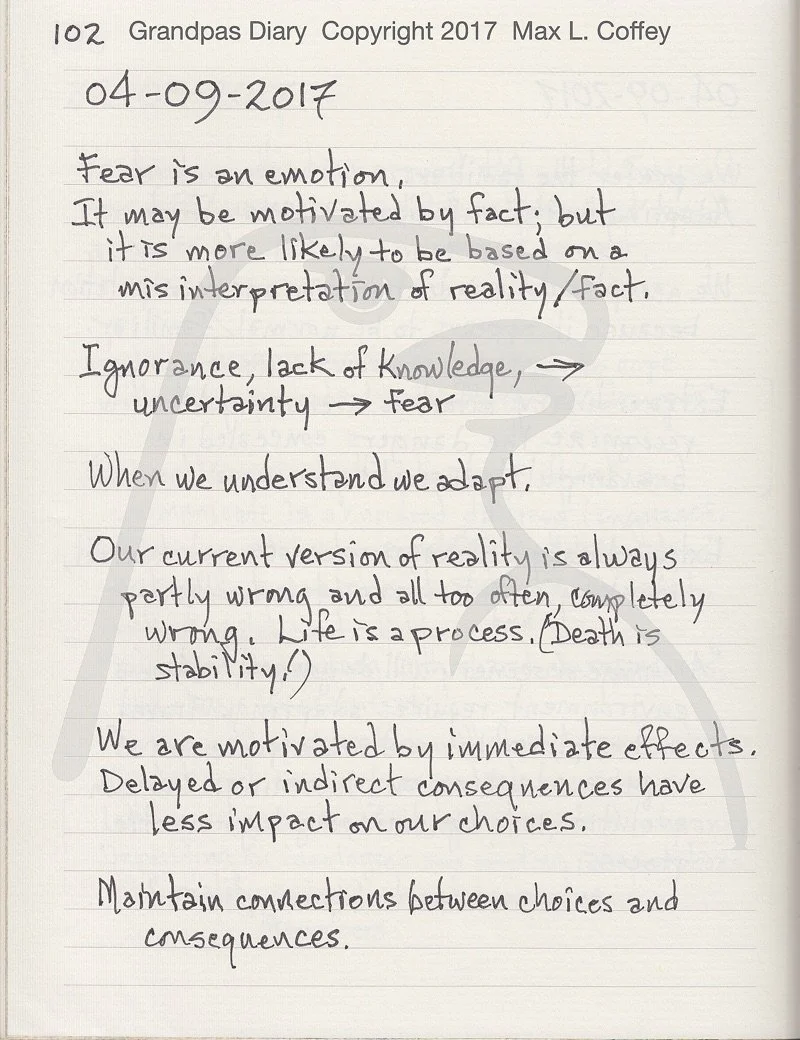 102 Grandpas Diary Copyright 2017 Max L. Coffey
04-09-2017
Fear is an emotion.
It may be motivated by fact; but
it is more likely to be based on a
mis interpretation of reality/fact.
Ignorance, lack of knowledge, →
uncertainty → fear
When we understand we adapt.
Our current version of reality is always
partly wrong and all too often, completely
wrong. Life is a process. (Death is
stability!)
We are motivated by immediate effects.
Delayed or indirect consequences have
less impact on our choices.
Maintain connections between choices and
consequences.